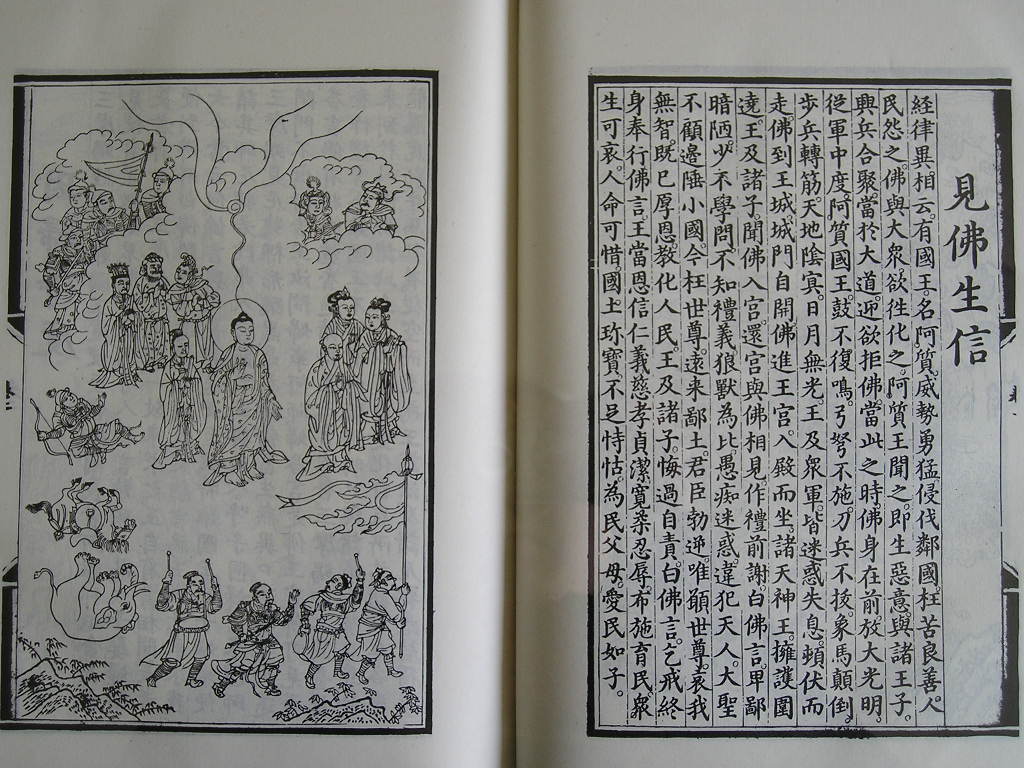 見佛生信
經律異相云。有國王。名阿質。威勢勇猛。侵伐鄰國。枉苦良善。人
民怨之。佛與大眾。欲徃化之。阿質王聞之。即生惡意。與諸王子。
興兵合聚。當於大道。迎欲拒佛。當此之時。佛身在前。放大光明。
從軍中度。阿質國王。鼓不復鳴。弓弩不施。刀兵不拔。象馬顛倒。
步兵轉筋。天地陰冥。日月無光。王及眾軍。皆迷惑失息。頓伏而
走。佛到王城。城門自開。佛進王宮。入殿而坐。諸天神王。擁護圍
遶。王及諸子。聞佛入宮。還宮與佛相見。作禮前謝。白佛言。卑鄙
暗陋。少不學問。不知禮義。狼獸為比。愚痴迷惑。違犯天人。大聖
不顧邊陲小國。今枉世尊。遠来鄙土。君臣勃逆。唯願世尊。哀我
無智。既已厚恩。教化人民。王及諸子。悔過自責。白佛言。乞戒終
身奉行。佛言。王當恩信仁義。慈孝貞潔。寬柔忍辱。布施育民。眾
生可哀。人命可惜。國土珍寶。不足恃怙。為民父母。愛民如子。